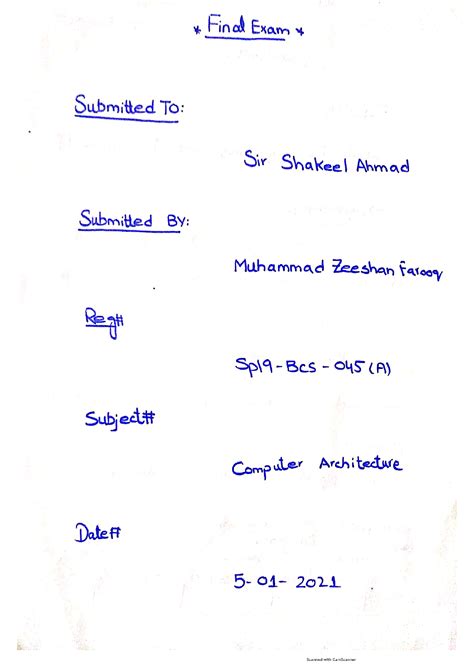 * Final Exam *
Submitted To:
Sir Shakeel Ahmad
Submitted By:
Muhammad Zeeshan Farooq
Reg#
Sp19-Bcs-045(A)
Subject#
Computer Architecture
Date#
5-01-2021
Scanned with CamScanner